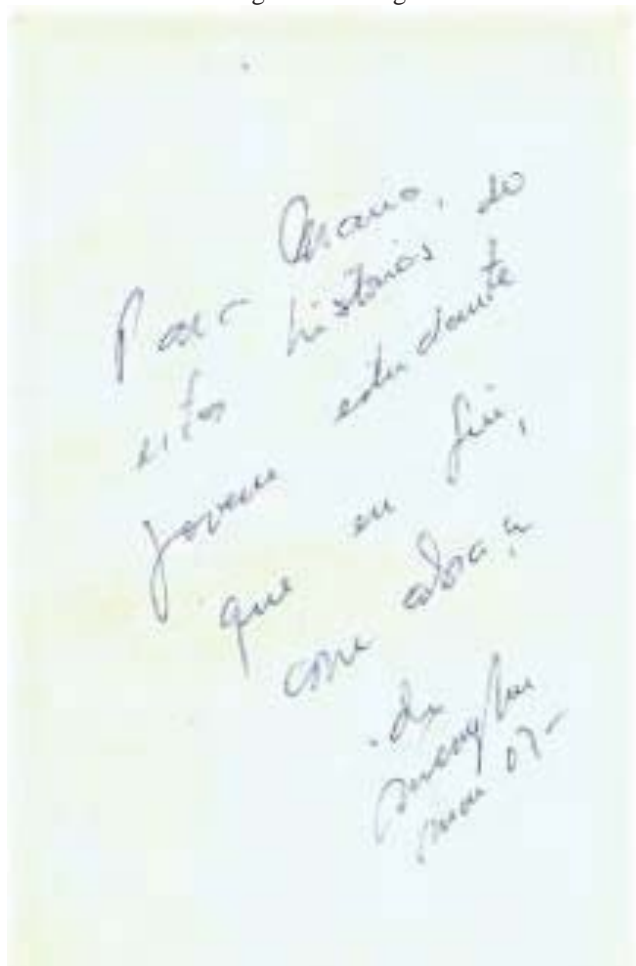 Para Mario,
estas histórias do
jovem estudante
que eu fui,
com abraço
do